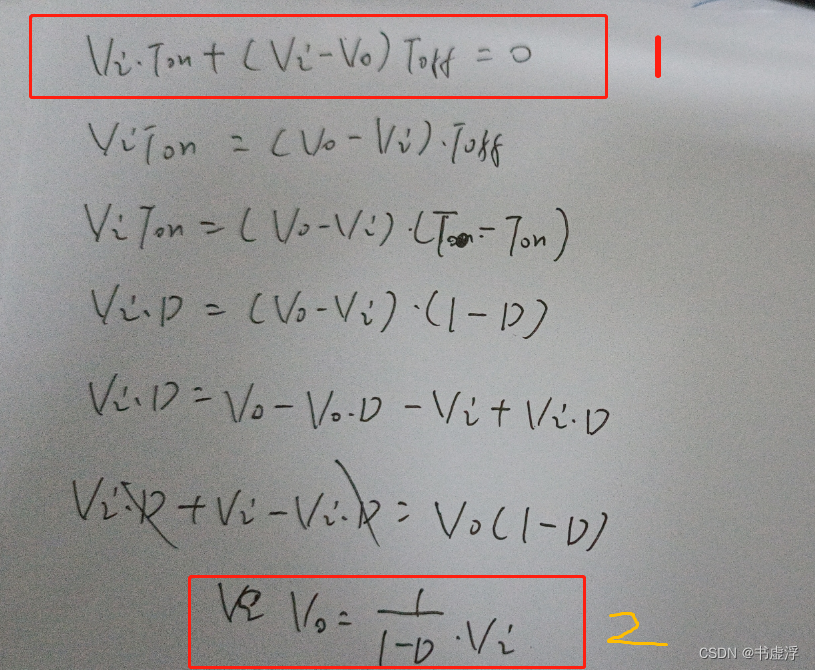 Vi·Ton + (Vi-Vo) Toff = 0
1
ViTon = (Vo-Vi)·Toff
ViTon = (Vo-Vi)·( - Ton)
Vi·D = (Vo-Vi)·(1-D)
Vi·D = Vo-Vo·D-Vi+Vi·D
Vi·D+Vi-Vi·D = Vo(1-D)
Vo = 1/(1-D)·Vi
2
CSDN @书虚浮